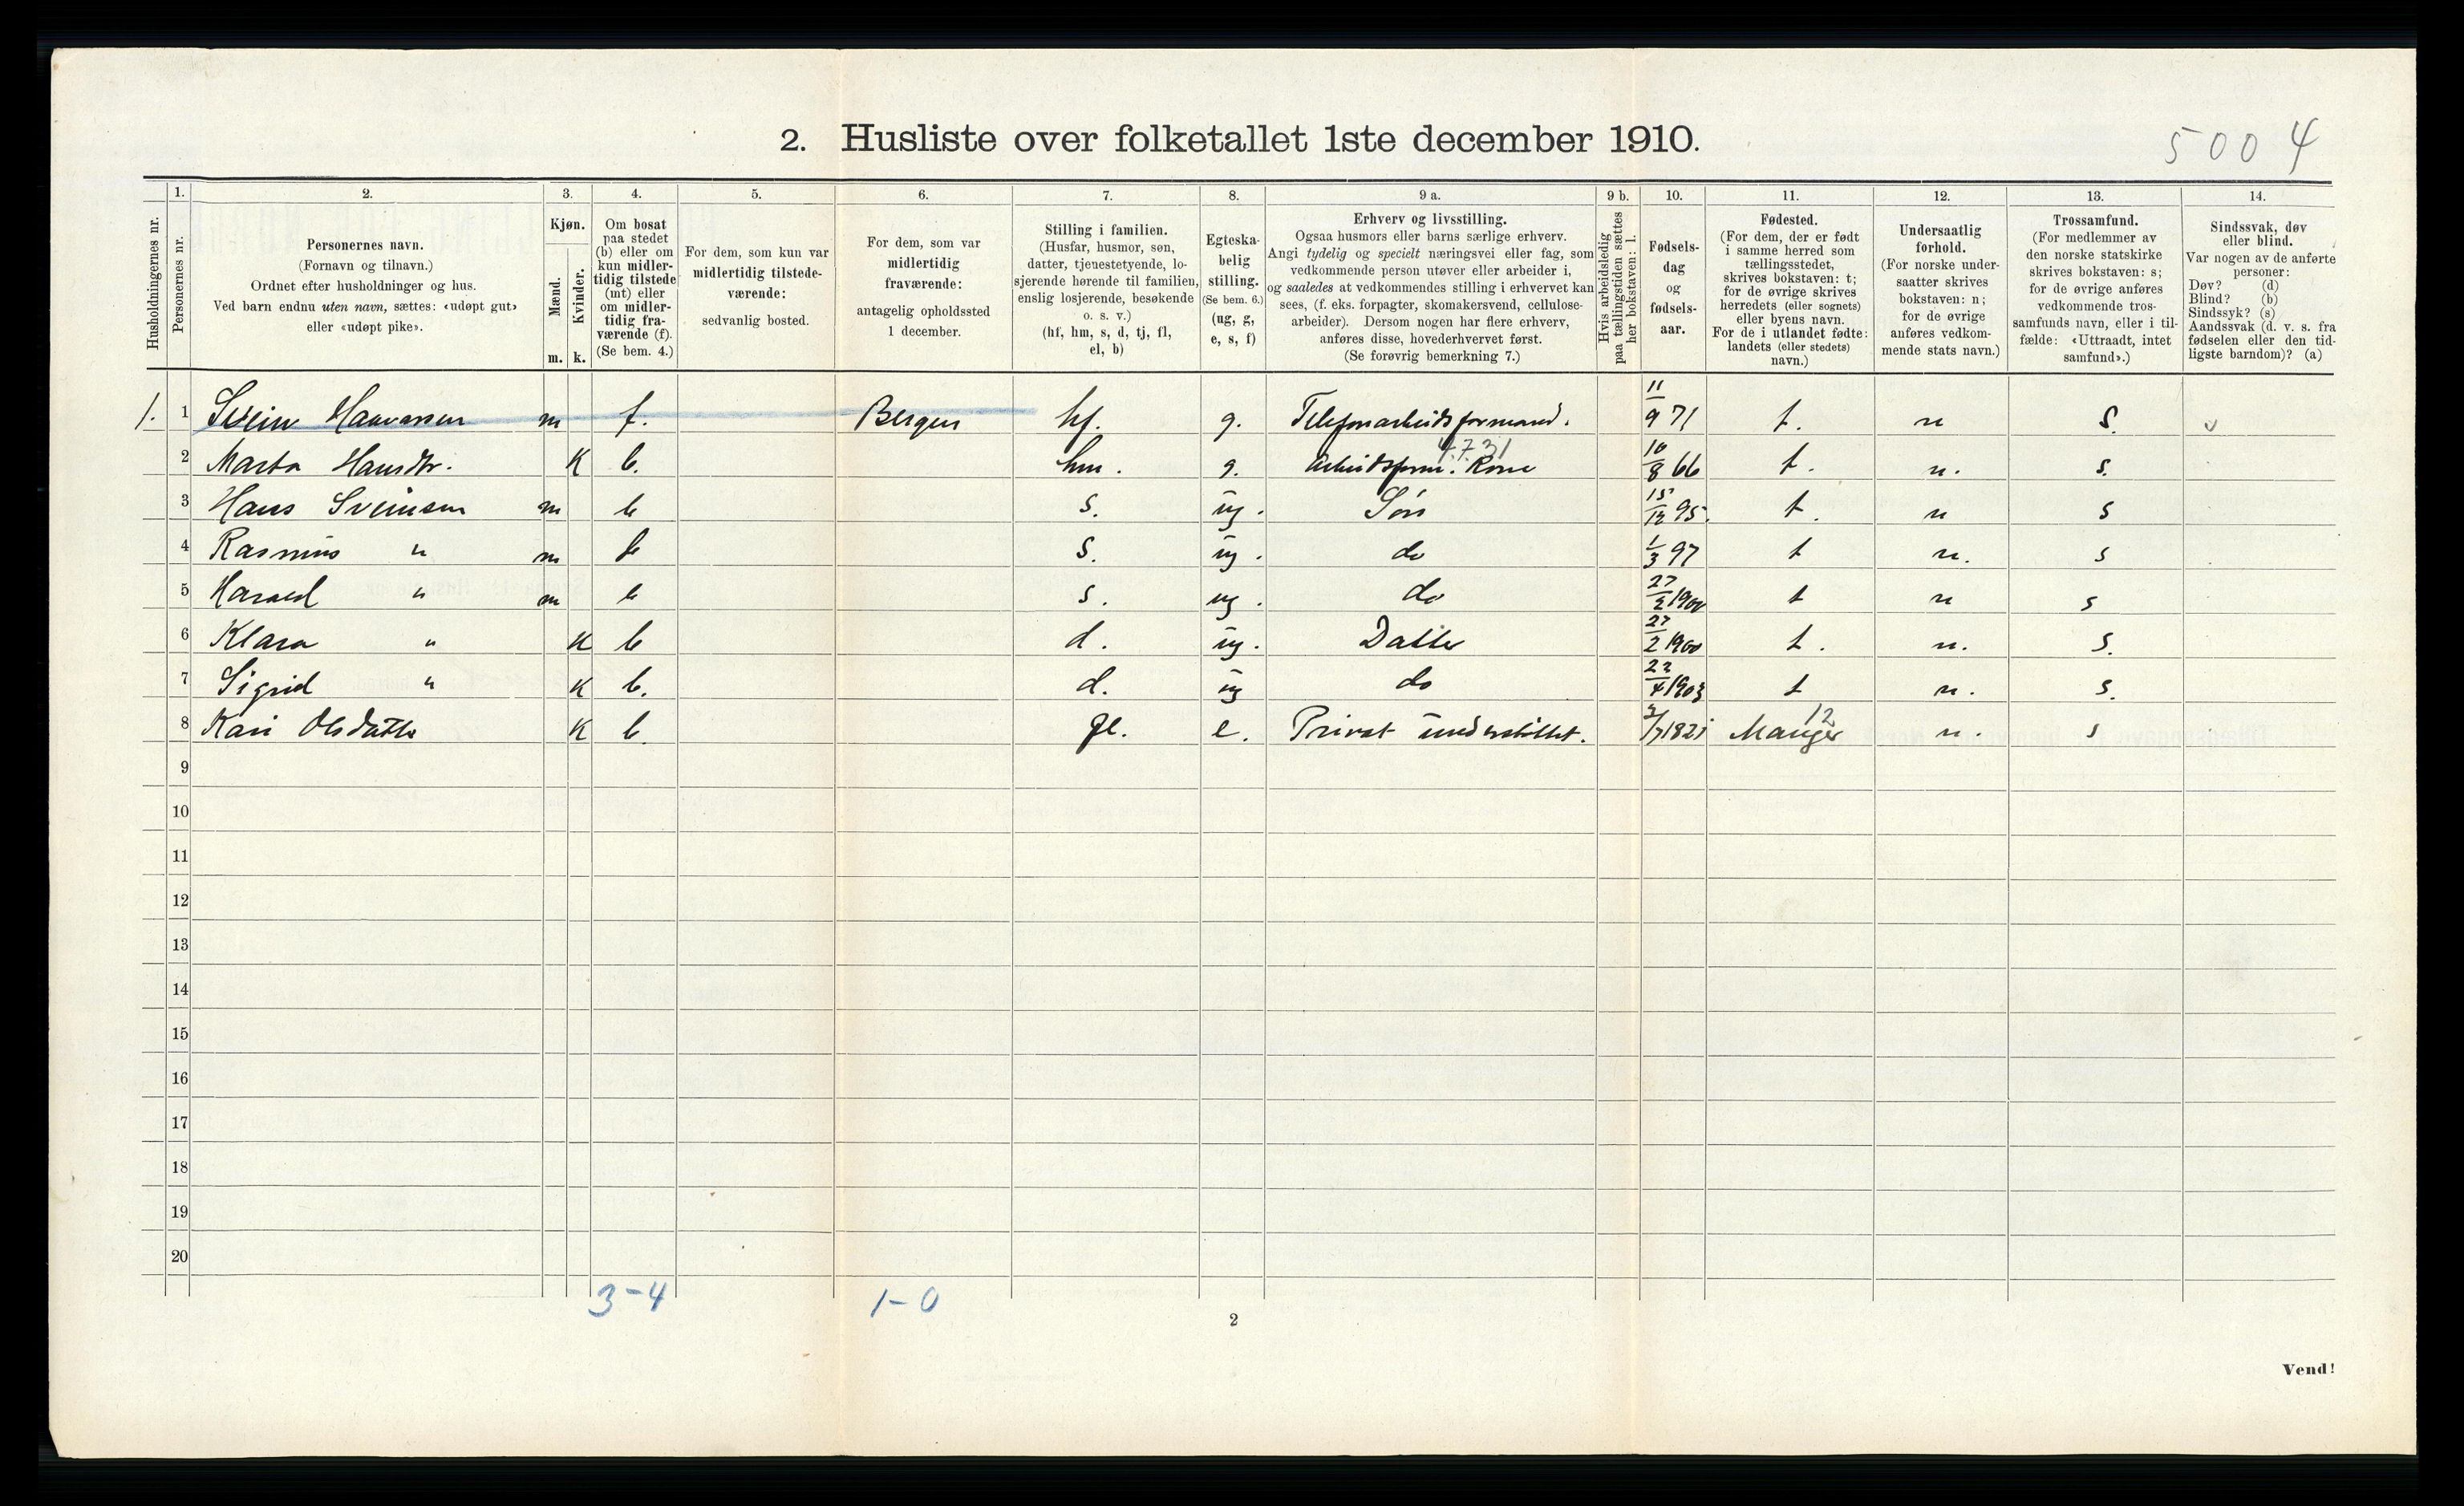 2. Husliste over folketallet 1ste december 1910.
5004
Husholdningernes nr.
1.
Personernes nr.
2.
Personernes navn.
(Fornavn og tilnavn.)
Ordnet efter husholdninger og hus.
Ved barn endnu uten navn, sættes: «udøpt gut»
eller «udøpt pike».
3.
Kjøn.
Mænd.
Kvinder.
m. k.
4.
Om bosat
paa stedet
(b) eller om
kun midler-
tidig tilstede
(mt) eller
om midler-
tidig fra-
værende (f).
(Se bem. 4.)
5.
For dem, som kun var
midlertidig tilstede-
værende:
sedvanlig bosted.
6.
For dem, som var
midlertidig
fraværende:
antagelig opholdssted
1 december.
7.
Stilling i familien.
(Husfar, husmor, søn,
datter, tjenestetyende, lo-
sjerende hørende til familien,
enslig losjerende, besøkende
o. s. v.)
(hf, hm, s, d, tj, fl,
el, b)
8.
Egteska-
belig
stilling.
(Se bem. 6.)
(ug, g,
e, s, f)
9 a.
Erhverv og livsstilling.
Ogsaa husmors eller barns særlige erhverv.
Angi tydelig og specielt næringsvei eller fag, som
vedkommende person utøver eller arbeider i,
og saaledes at vedkommendes stilling i erhvervet kan
sees, (f. eks. forpagter, skomakersvend, cellulose-
arbeider). Dersom nogen har flere erhverv,
anføres disse, hovederhvervet først.
(Se forøvrig bemerkning 7.)
9 b.
Hvis arbeidsledig
paa tællingstiden sættes
her bokstaven: l.
10.
Fødsels-
dag
og
fødsels-
aar.
11.
Fødested.
(For dem, der er født
i samme herred som
tællingsstedet,
skrives bokstaven: t;
for de øvrige skrives
herredets (eller sognets)
eller byens navn.
For de i utlandet fødte:
landets (eller stedets)
navn.)
12.
Undersaatlig
forhold.
(For norske under-
saatter skrives
bokstaven: n;
for de øvrige
anføres vedkom-
mende stats navn.)
13.
Trossamfund.
(For medlemmer av
den norske statskirke
skrives bokstaven: s;
for de øvrige anføres
vedkommende tros-
samfunds navn, eller i til-
fælde: «Uttraadt, intet
samfund».)
14.
Sindssvak, døv
eller blind.
Var nogen av de anførte
personer:
Døv? (d)
Blind? (b)
Sindssyk? (s)
Aandssvak (d. v. s. fra
fødselen eller den tid-
ligste barndom)? (a)
1. 1 Svein Haavarsen m f. Bergen hf. g. Telefonarbeidsformand. 11/9 71 t. n S. v
4.7.31
2 Marta Hansdtr. K b. hm. g. Arbeidsform. Kone 10/8 66 t. n. s.
3 Hans Sveinsen m b s. ug. Søn 15/12 95. t. n s
4 Rasmus " m b s. ug. do 1/3 97 t n. s
5 Harald " m b s. ug. do 27/2 1900 t n s
6 Klara " K b d. ug. Datter 27/2 1900 t. n. s.
7 Sigrid " K b. d. ug do 22/4 1903 t n. s.
12
8 Kari Olsdatter K b. fl. e. Privat understøttet. Manger n. s
9
10
11
12
13
14
15
16
17
18
19
20
3-4 1-0
2
Vend!